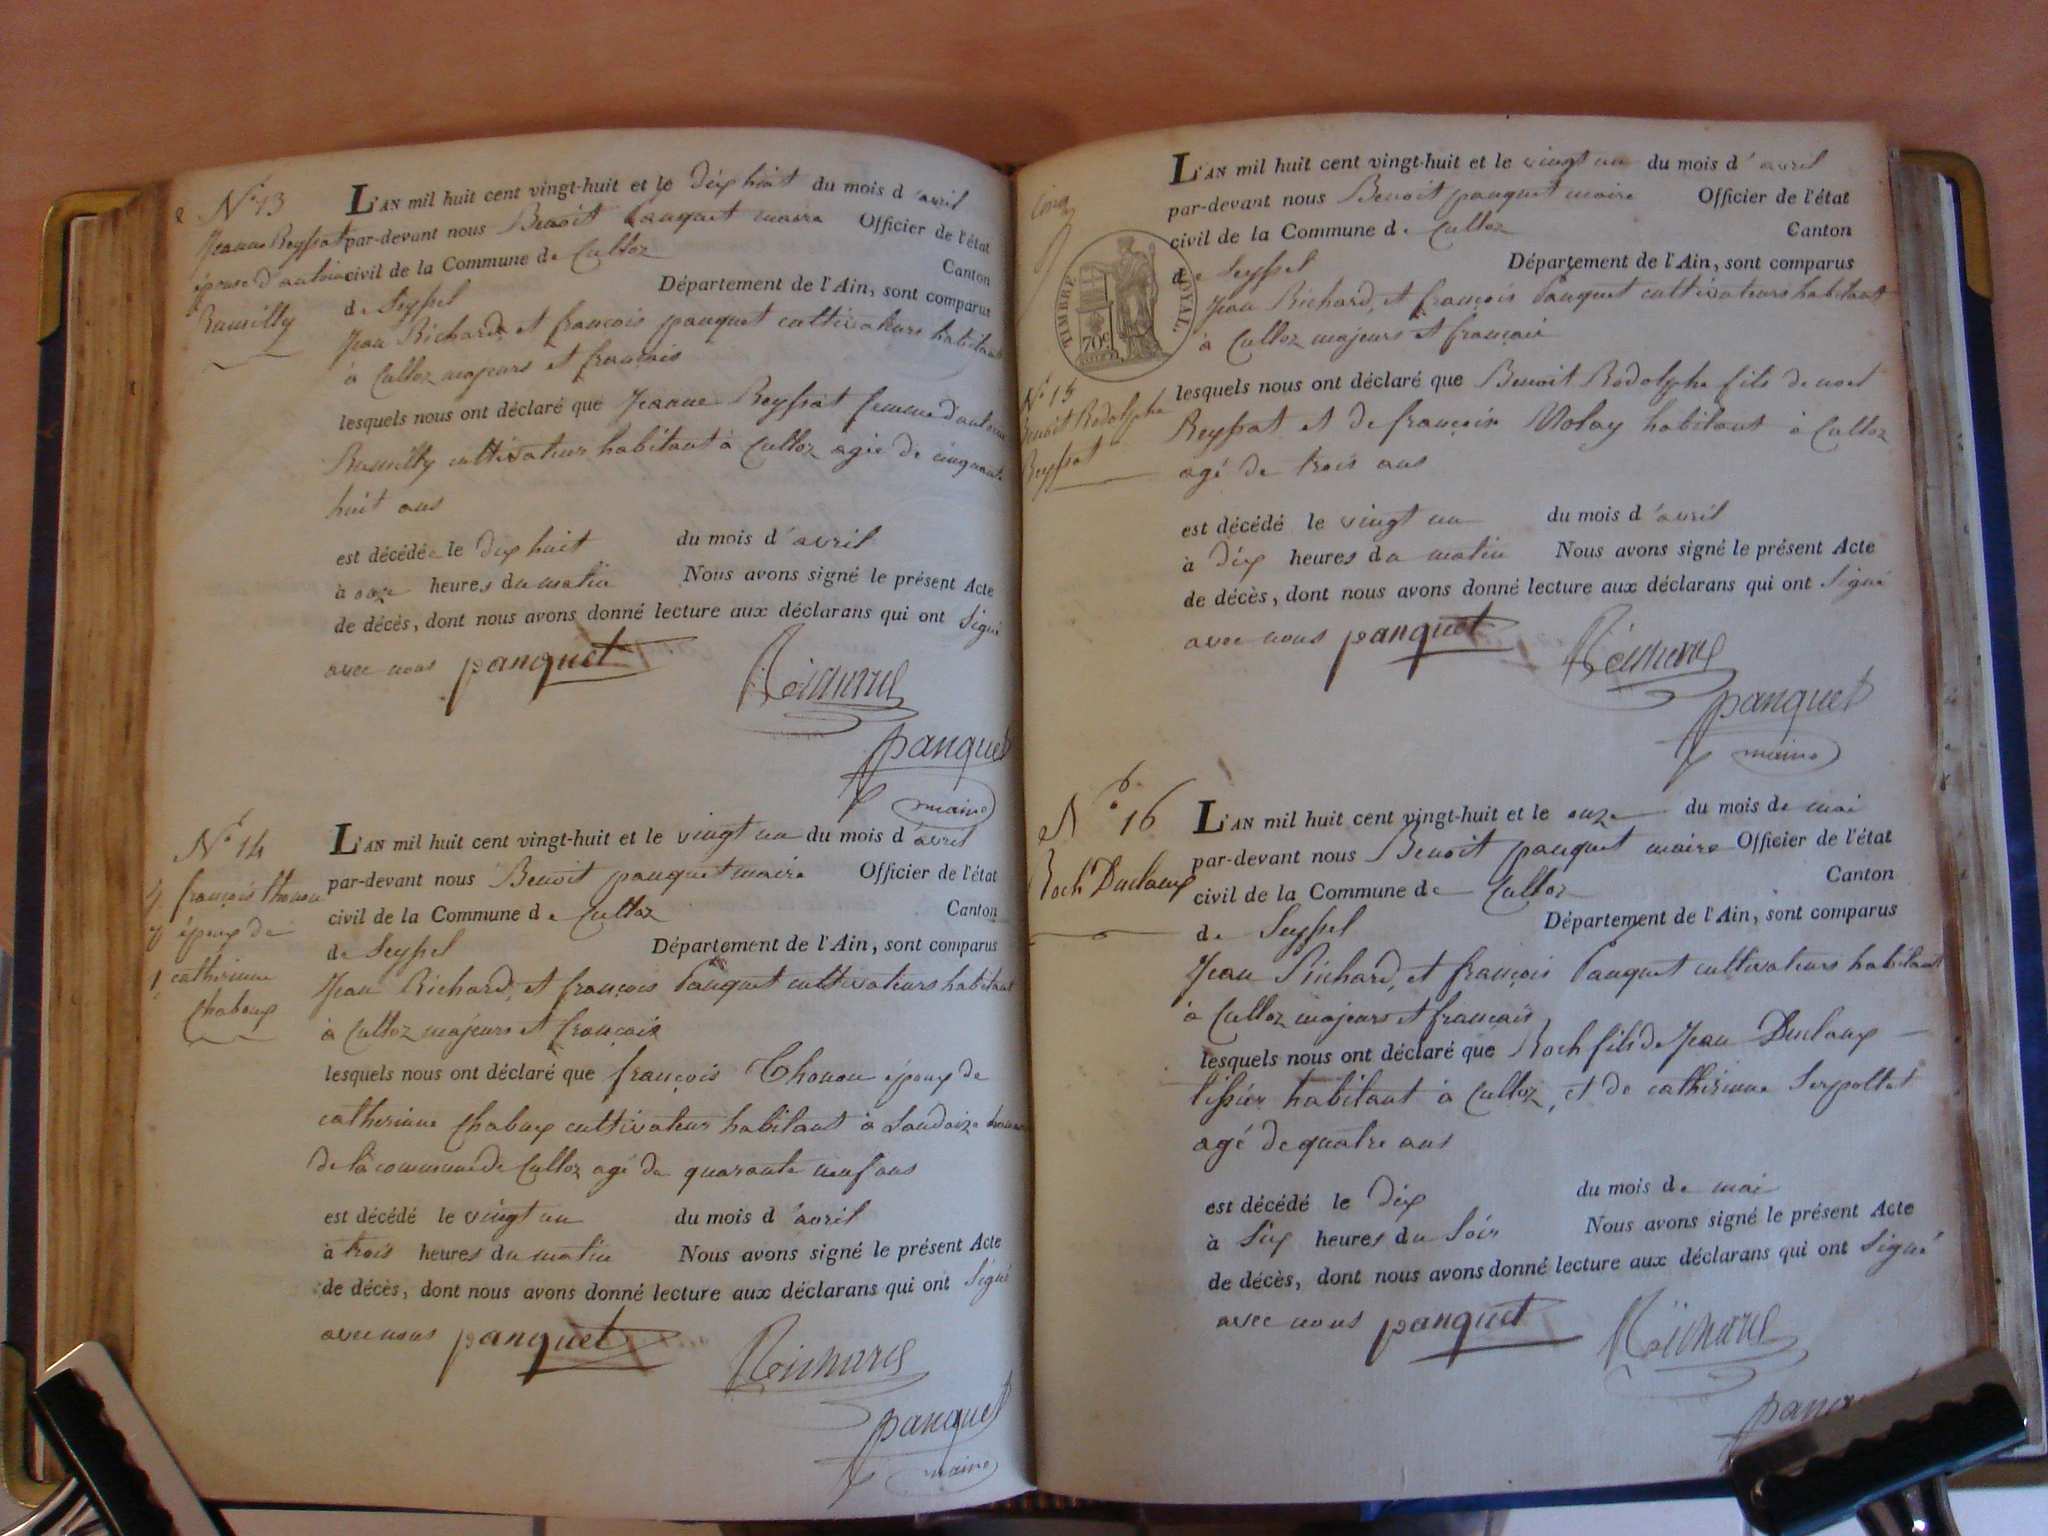 N° 13
Jeanne Reyssat
épouse d'antoine
Rumilly
L'AN mil huit cent vingt-huit et le dix huit du mois d'avril
par-devant nous Benoit panquet maire Officier de l'état
civil de la Commune de Culloz Canton
de Seyssel Département de l'Ain, sont comparus
Jean Richard, et françois panquet cultivateurs habitant
à Culloz majeurs et français
lesquels nous ont déclaré que Jeanne Reyssat femme d'antoine
Rumilly cultivateur habitant à Culloz agée de cinquante
huit ans
est décédée le dix huit du mois d'avril
à onze heures du matin Nous avons signé le présent Acte
de décès, dont nous avons donné lecture aux déclarans qui ont signé
avec nous panquet Richard
panquet
maire
N° 14
françois thonou
époux de
catherinne
Chaboux
L'AN mil huit cent vingt-huit et le vingt un du mois d'avril
par-devant nous Benoit panquet maire Officier de l'état
civil de la Commune de Culloz Canton
de Seyssel Département de l'Ain, sont comparus
Jean Richard, et françois Panquet cultivateurs habitant
à Culloz majeurs et français
lesquels nous ont déclaré que françois Thonou époux de
catherinne Chaboux cultivateur habitant à Landaize
de la commune de Culloz agé de quarante neuf ans
est décédé le vingt un du mois d'avril
à trois heures du matin Nous avons signé le présent Acte
de décès, dont nous avons donné lecture aux déclarans qui ont signé
avec nous panquet Richard
panquet
maire
TIMBRE ROYAL.
70c
N° 15
Benoit Rodolphe
Reyssat
L'AN mil huit cent vingt-huit et le vingt un du mois d'avril
par-devant nous Benoit panquet maire Officier de l'état
civil de la Commune de Culloz Canton
de Seyssel Département de l'Ain, sont comparus
Jean Richard, et françois Panquet cultivateurs habitant
à Culloz majeurs et français
lesquels nous ont déclaré que Benoit Rodolphe fils de noel
Reyssat et de françoise Molay habitant à Culloz
agé de trois ans
est décédé le vingt un du mois d'avril
à dix heures du matin Nous avons signé le présent Acte
de décès, dont nous avons donné lecture aux déclarans qui ont signé
avec nous panquet Richard
panquet
maire
N° 16
Roch Duclaux
L'AN mil huit cent vingt-huit et le onze du mois de mai
par-devant nous Benoit panquet maire Officier de l'état
civil de la Commune de Culloz Canton
de Seyssel Département de l'Ain, sont comparus
Jean Richard, et françois Panquet cultivateurs habitant
à Culloz majeurs et français
lesquels nous ont déclaré que Roch fils de Jean Duclaux
tissier habitant à Culloz, et de catherinne Serpollet
agé de quatre ans
est décédé le dix du mois de mai
à six heures du soir Nous avons signé le présent Acte
de décès, dont nous avons donné lecture aux déclarans qui ont signé
avec nous panquet Richard